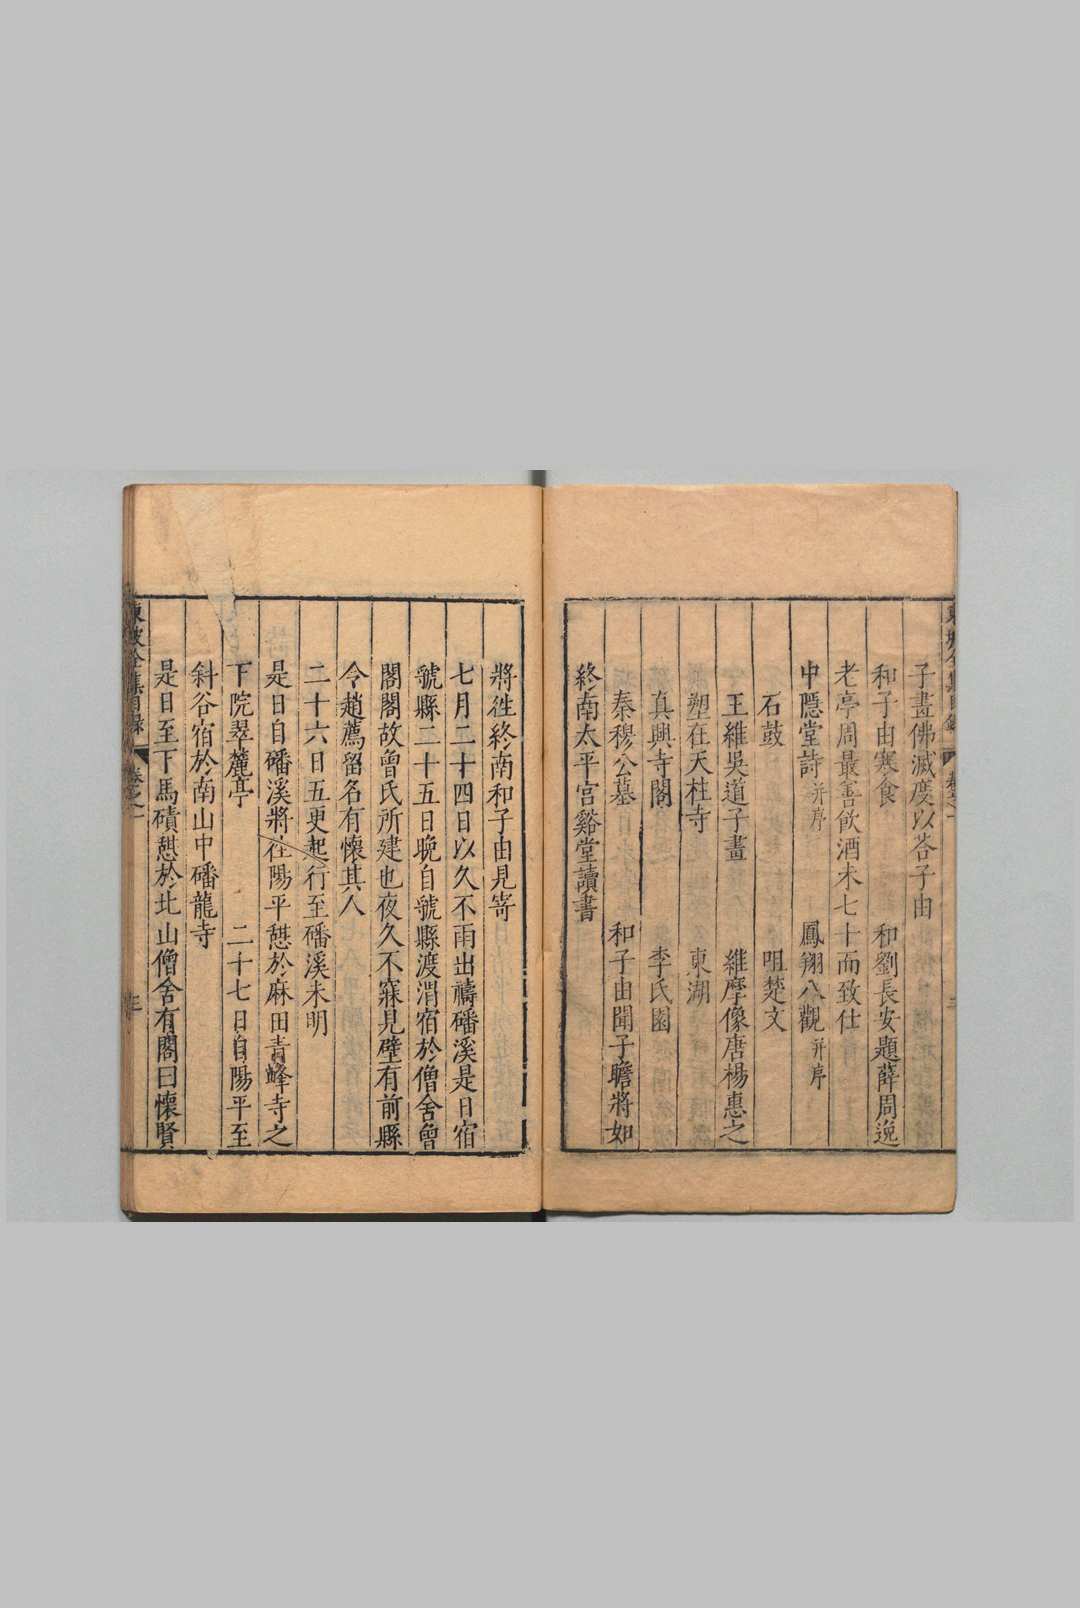 子畫佛滅度以荅子由
和子由寒食　和劉長安題薛周逸
老亭周最善飲酒未七十而致仕
中隱堂詩并序　鳳翔八觀并序
石鼓　咀楚文
王維吳道子畫　維摩像唐楊惠之
塑在天柱寺　東湖
真興寺閣　李氏園
秦穆公墓　和子由聞子瞻將如
終南太平宮谿堂讀書
將徃終南和子由見寄
七月二十四日以久不雨出禱磻溪是日宿
虢縣二十五日晚自虢縣渡渭宿於僧舍曾
閣閣故曾氏所建也夜久不寐見壁有前縣
令趙薦留名有懷其人
二十六日五更起行至磻溪未明
是日自磻溪將徃陽平憇於麻田青峰寺之
下院翠麓亭　二十七日自陽平至
斜谷宿於南山中磻龍寺
是日至下馬磧憇於北山僧舍有閣曰懷賢
東坡全集目錄　卷之一